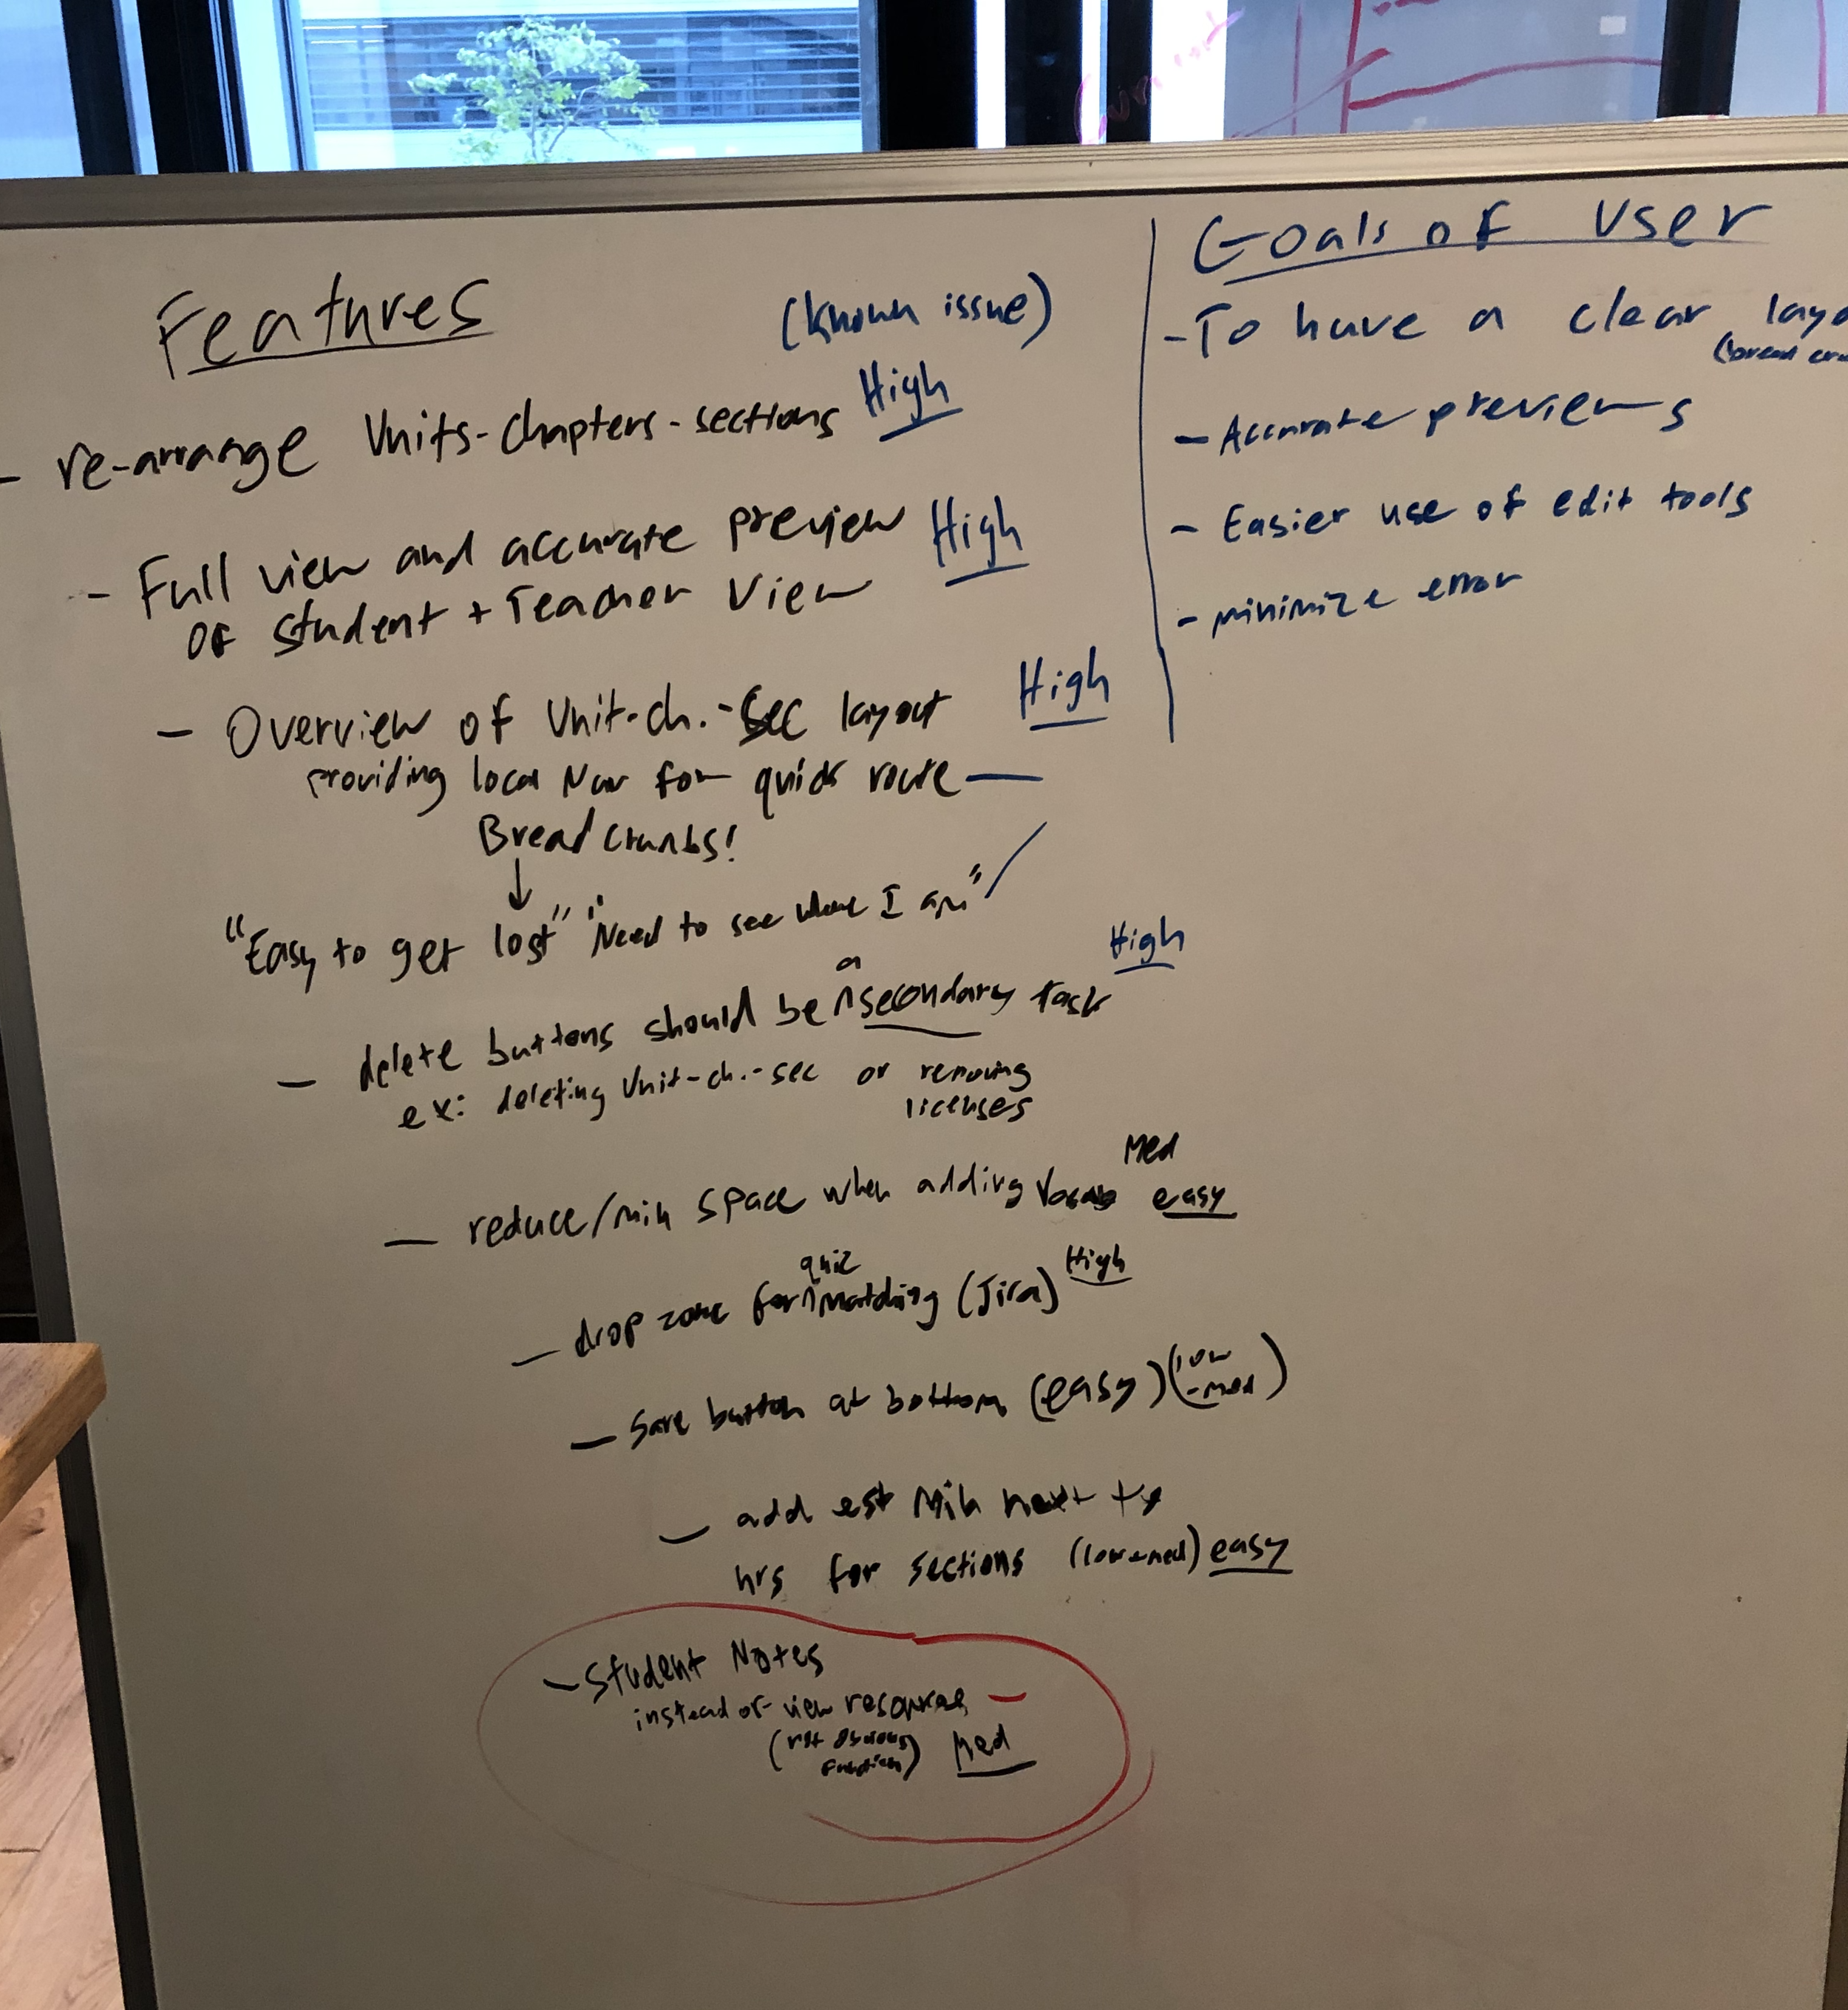 Features
(known issue)
- re-arrange Units-chapters-sections High
- Full view and accurate preview High
of student + Teacher View
- Overview of Unit-ch.-Sec layout High
providing local Nav for quick route —
Bread crumbs!
↓
"Easy to get lost" "Need to see where I am"
- delete buttons should be a secondary task High
ex: deleting Unit-ch.-sec or removing
licenses
- reduce/min space when adding Vocab Med
easy
- drop zone for quiz matching (Jira) High
- Save button at bottom (easy) (low
-med)
- add est min next to
hrs for sections (low-med) easy
- Student Notes
instead of view resources —
(not obvious
function) Med
Goals of User
- To have a clear
- Accurate previews
- Easier use of edit tools
- minimize error